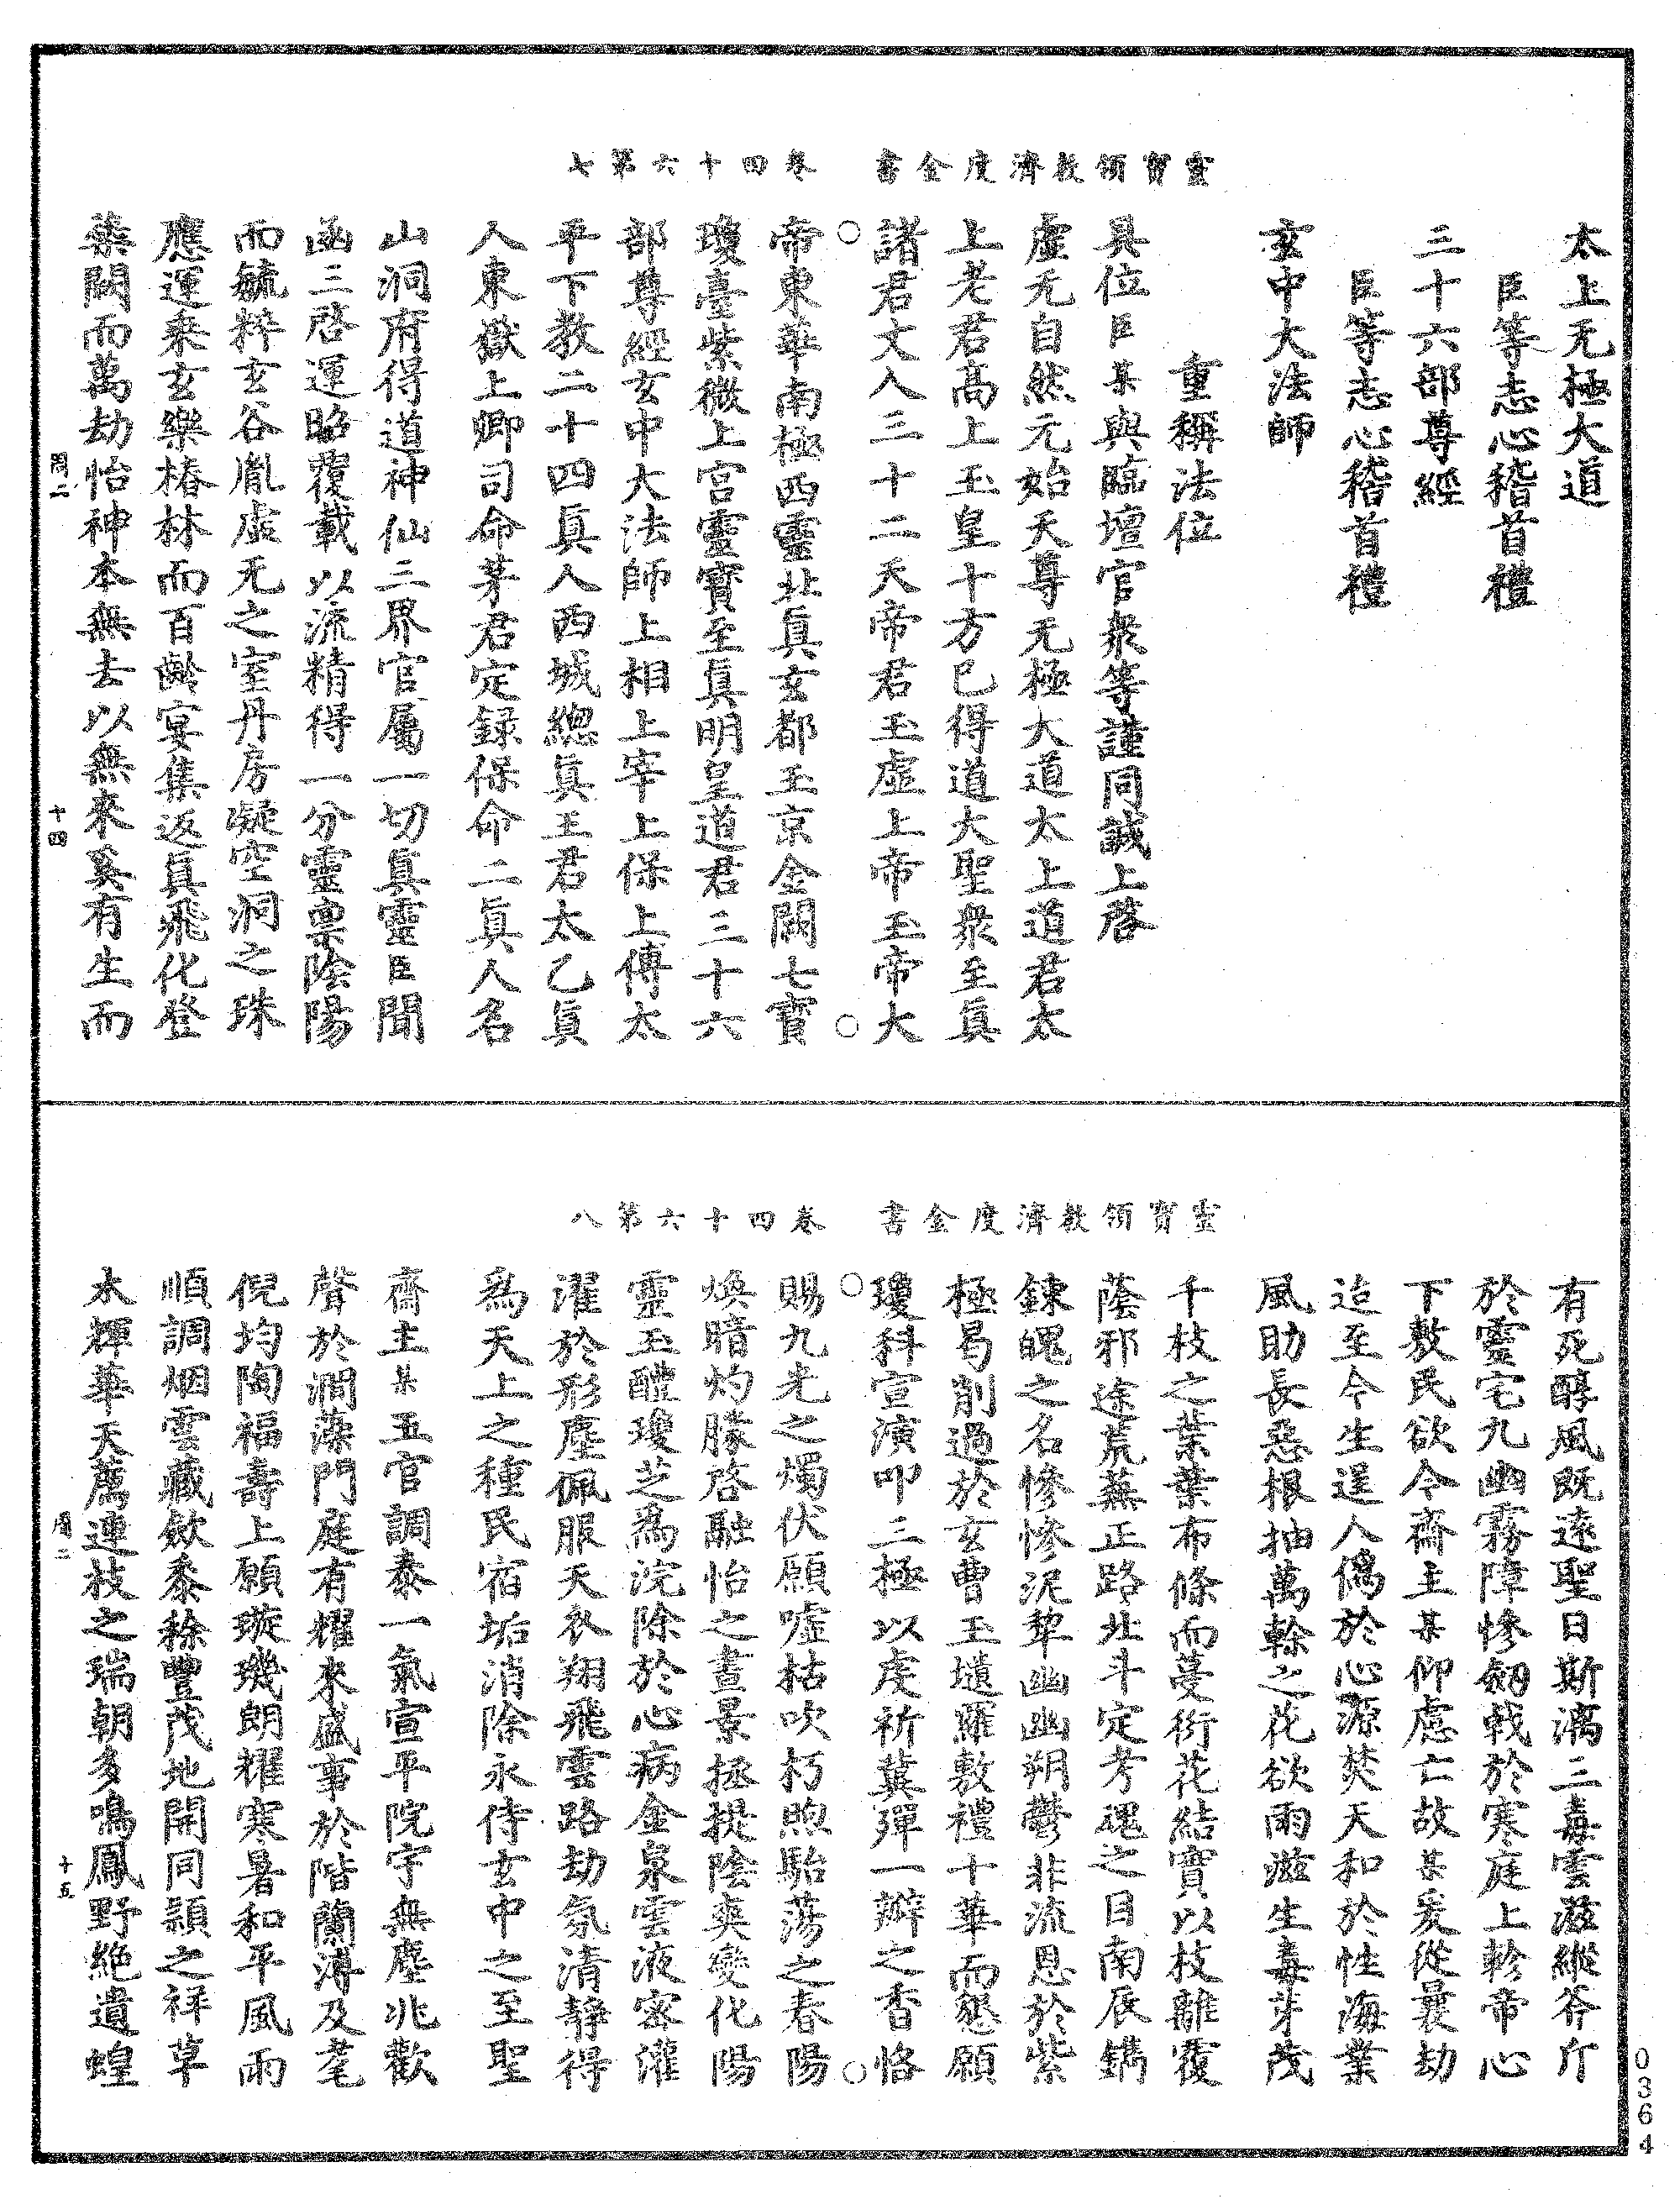 靈寶領教濟度金書　卷四十六第七
太上无極大道
臣等志心稽首禮
三十六部尊經
臣等志心稽首禮
玄中大法師
重稱法位
具位臣某與臨壇官衆等謹同誠上啓
虛无自然元始天尊无極大道太上道君太
上老君高上玉皇十方已得道大聖衆至眞
諸君丈人三十二天帝君玉虛上帝玉帝大
帝東華南極西靈北眞玄都玉京金闕七寶
瓊臺紫微上宮靈寶至眞明皇道君三十六
部尊經玄中大法師上相上宰上保上傅太
平下教二十四眞人西城總眞王君太乙眞
人東嶽上卿司命茅君定録保命二眞人名
山洞府得道神仙三界官屬一切眞靈臣聞
函三啓運昭覆載以流精得一分靈稟陰陽
而毓粹玄谷胤虛无之室丹房凝空洞之珠
應運乘玄樂椿林而百齡宴集返眞飛化登
蘂闕而萬劫怡神本無去以無來奚有生而
閏二　十四
靈寶領教濟度金書　卷四十六第八
有死醇風旣遠聖日斯漓三毒雲滋縱斧斤
於靈宅九幽霧障慘劒戟於寒庭上軫帝心
下敷民欲今齋主某仰慮亡故某爰從曩劫
迨至今生逞入僞於心源焚天和於性海業
風助長惡根抽萬榦之花欲雨滋生毒芽茂
千枝之葉葉布條而蔓衍花結實以枝離覆
蔭邪途荒蕪正路北斗定考魂之目南辰鐫
錬魄之名慘慘泥犂幽幽朔鬱非流恩於紫
極曷削過於玄曹玉壝羅敷禮十華而懇願
瓊科宣演叩三極以虔祈冀殫一瓣之香恪
賜九光之燭伏願噓枯吹朽煦駘蕩之春陽
煥暗灼朦啓融怡之晝景拯提陰爽變化陽
靈玉醴瓊芝爲浣除於心病金泉雲液密灌
濯於形塵佩服天衣翔飛雲路劫氛清靜得
爲天上之種民宿垢消除永侍玄中之至聖
齋主某五官調泰一氣宣平院宇無塵兆歡
聲於澗藻門庭有耀來盛事於階蘭溥及耄
倪均陶福壽上願璇璣朗耀寒暑和平風雨
順調烟雲藏斂黍稌豐茂地開同頴之祥草
木輝華天薦連枝之瑞朝多鳴鳳野絶遺蝗
閏二　十五
0364